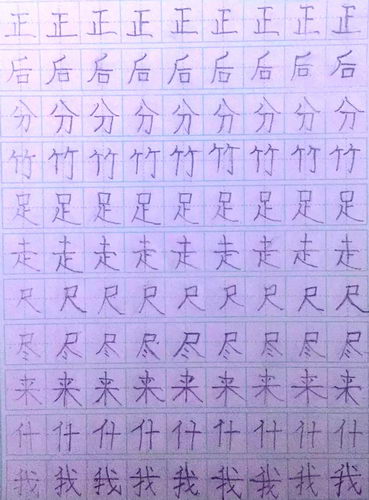 正正正正正正正正正
后后后后后后后后后
分分分分分分分分分
竹竹竹竹竹竹竹竹竹
足足足足足足足足足
走走走走走走走走走
尺尺尺尺尺尺尺尺尺
尽尽尽尽尽尽尽尽尽
来来来来来来来来来
什什什什什什什什什
我我我我我我我我我